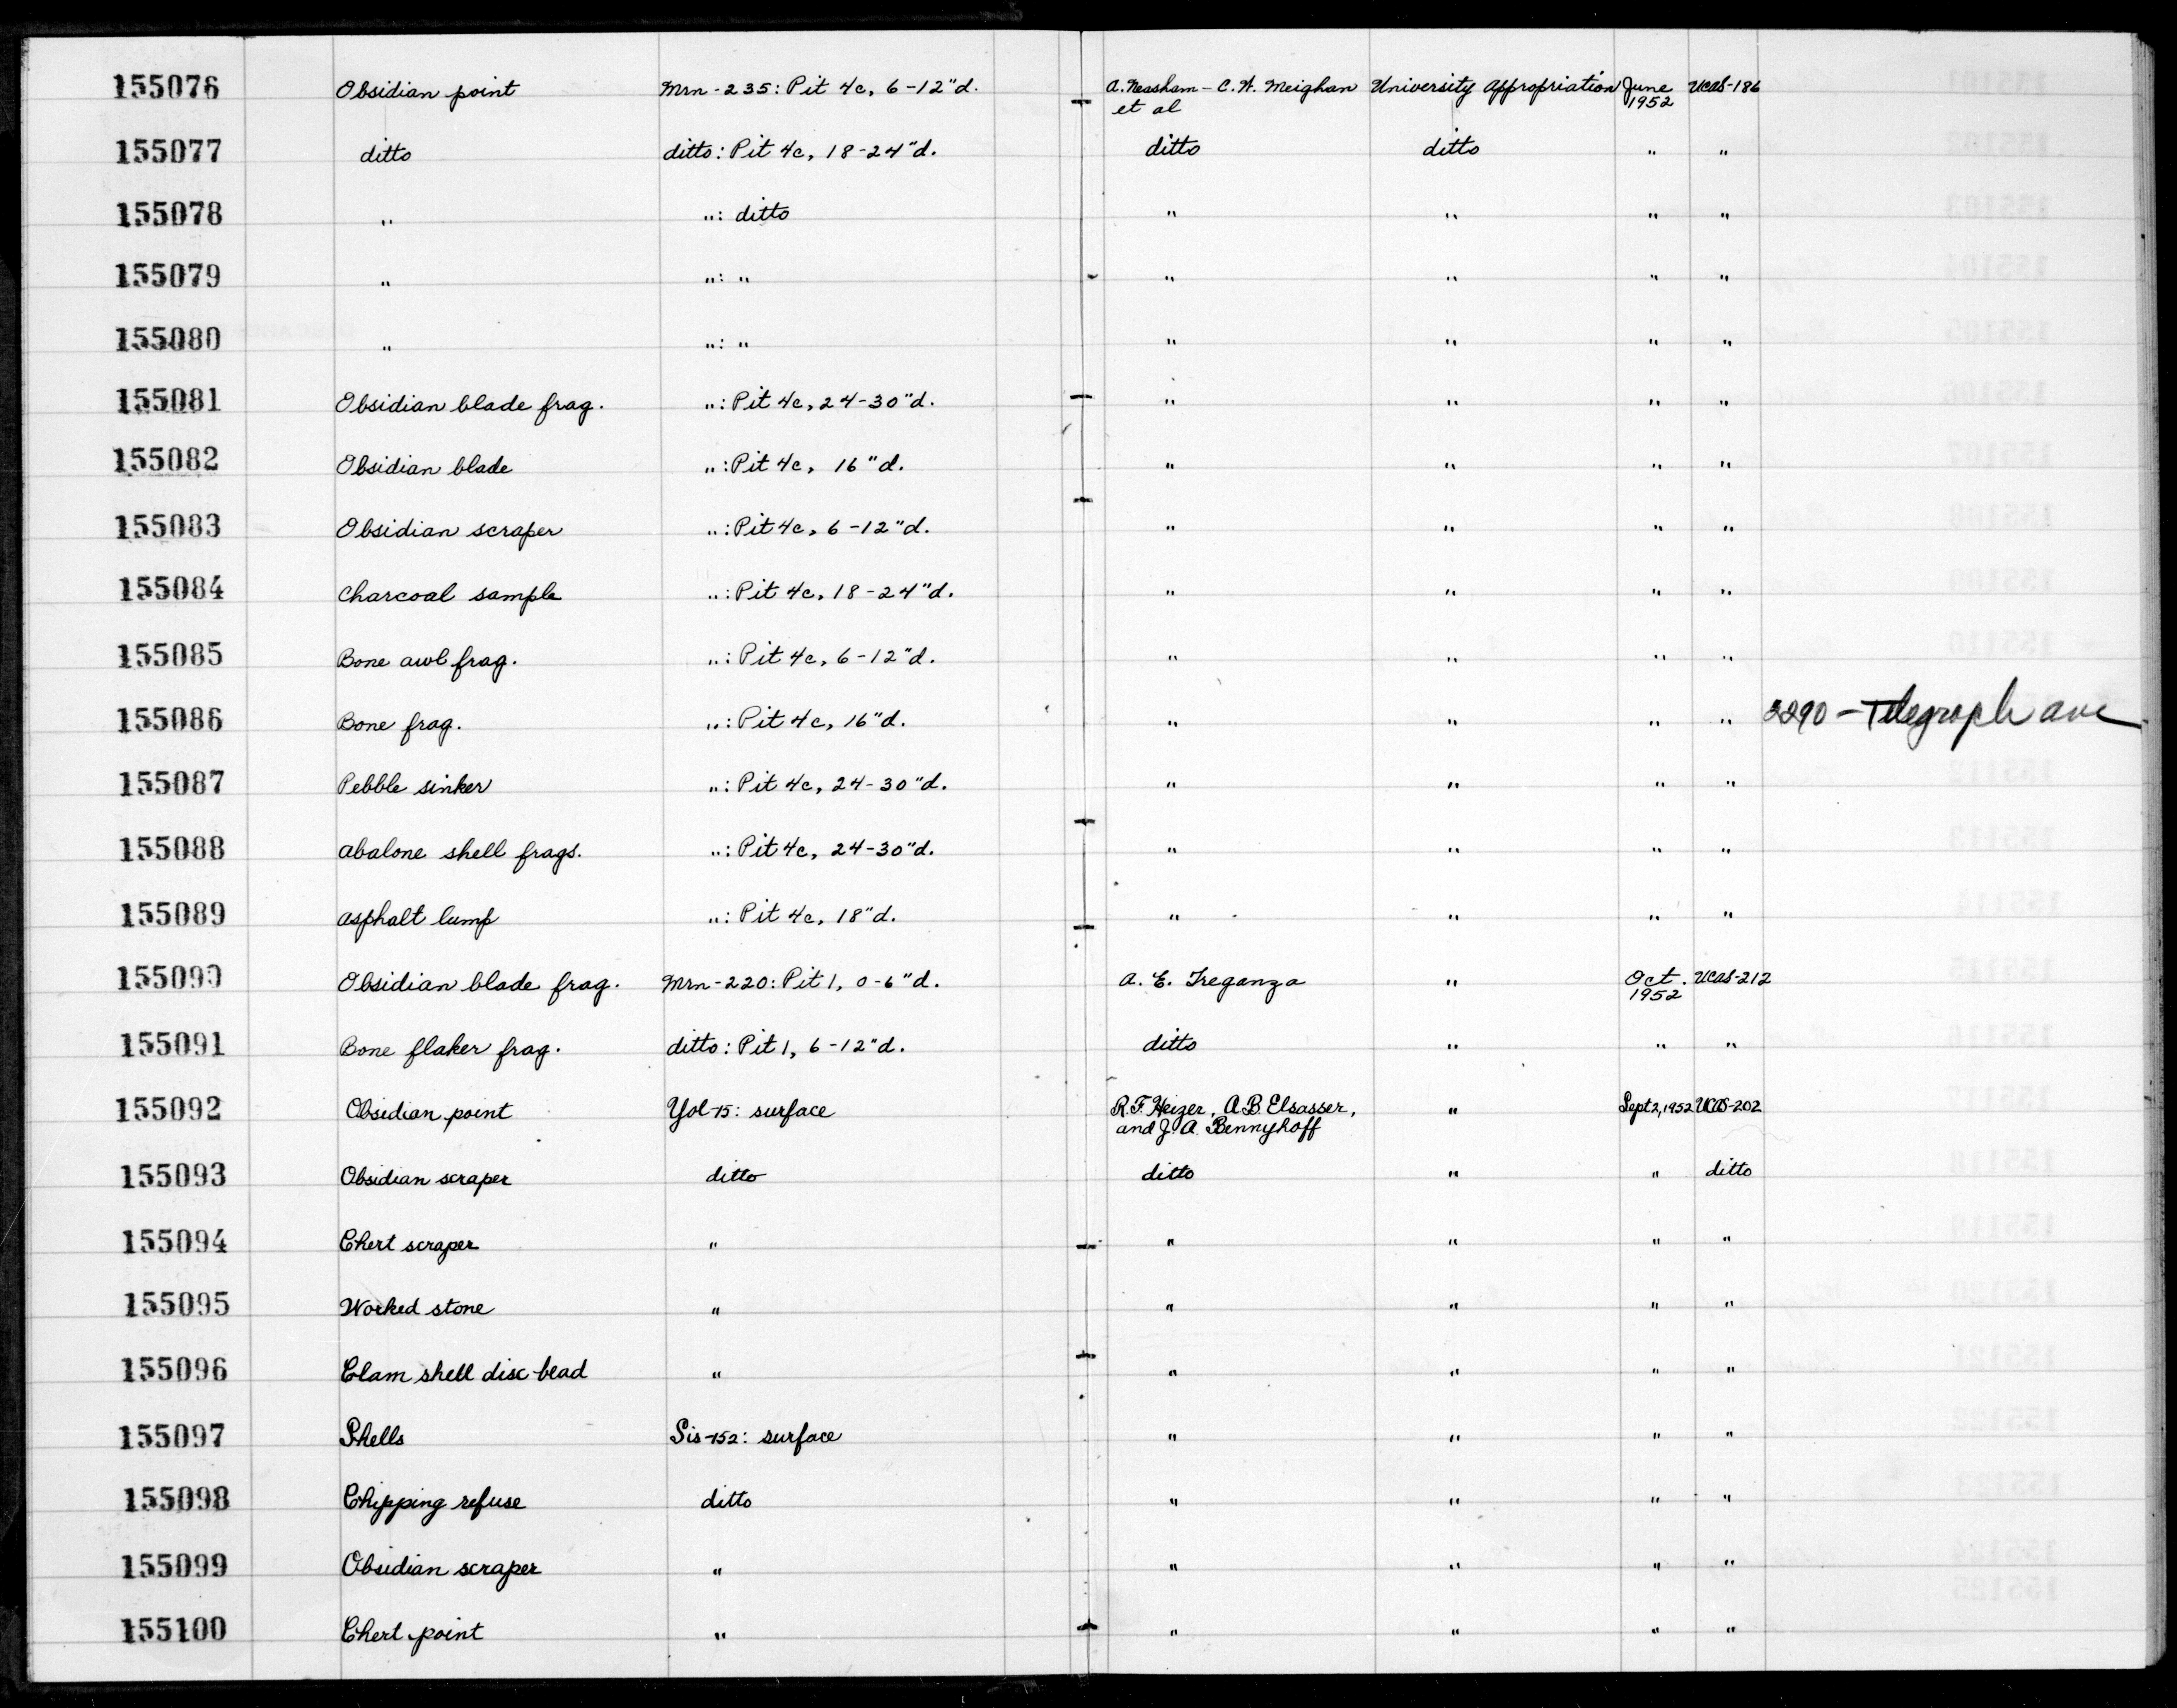 155076 Obsidian point Mrn-235: Pit 4c, 6-12"d. A. Neasham - C.W. Meighan University Appropriation June UCAS-186
et al 1952
155077 ditto ditto: Pit 4c, 18-24"d. ditto ditto " "
155078 " ": ditto " " " "
155079 " ": " " " " "
155080 " ": " " " " "
155081 Obsidian blade frag. ": Pit 4c, 24-30"d. " " " "
155082 Obsidian blade ": Pit 4c, 16"d. " " " "
155083 Obsidian scraper ": Pit 4c, 6-12"d. " " " "
155084 Charcoal sample ": Pit 4c, 18-24"d. " " " "
155085 Bone awl frag. ": Pit 4c, 6-12"d. " " " "
155086 Bone frag. ": Pit 4c, 16"d. " " " " 2290 - Telegraph ave
155087 Pebble sinker ": Pit 4c, 24-30"d. " " " "
155088 abalone shell frags. ": Pit 4c, 24-30"d. " " " "
155089 asphalt lump ": Pit 4c, 18"d. " " " "
155090 Obsidian blade frag. Mrn-220: Pit 1, 0-6"d. A. E. Treganza " Oct. UCAS-212
1952
155091 Bone flaker frag. ditto: Pit 1, 6-12"d. ditto " " "
155092 Obsidian point Yol-15: surface R.F. Heizer, A.B. Elsasser, " Sept 2, 1952 UCAS-202
and J.A. Bennyhoff
155093 Obsidian scraper ditto ditto " " ditto
155094 Chert scraper " " " " "
155095 Worked stone " " " " "
155096 Clam shell disc bead " " " " "
155097 Shells Sis-152: surface " " " "
155098 Chipping refuse ditto " " " "
155099 Obsidian scraper " " " " "
155100 Chert point " " " " "